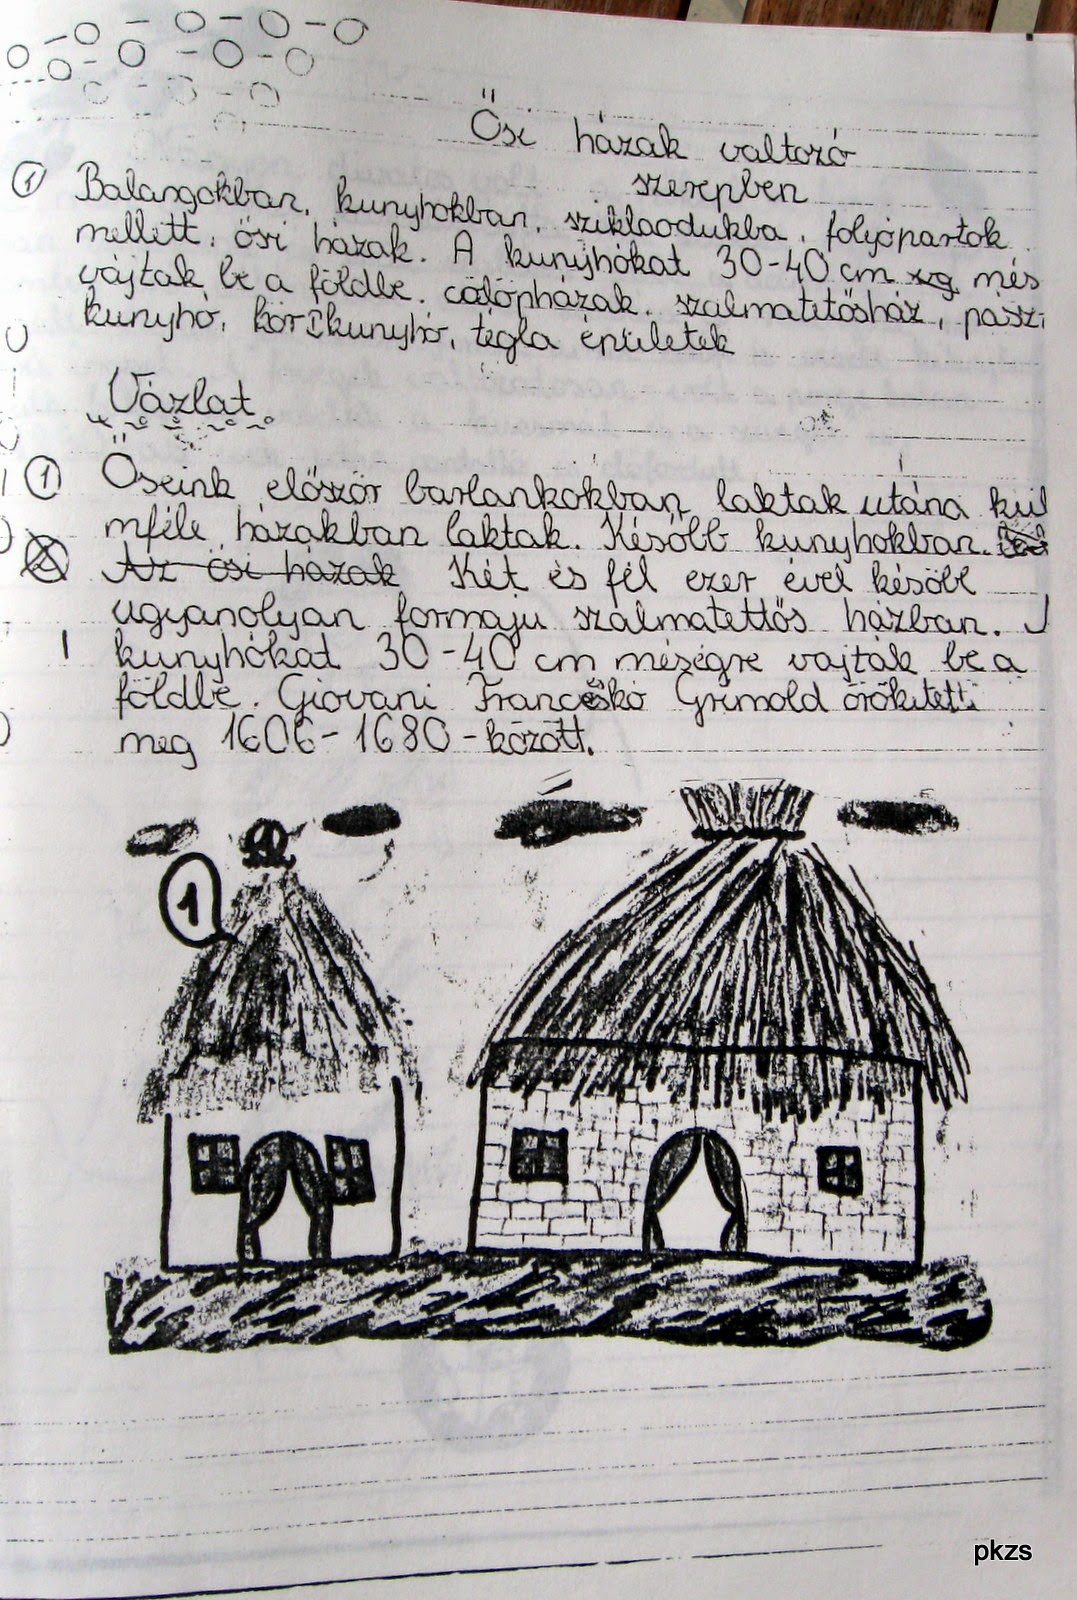 Ősi házak valtozó
szerepben
① Balangokban, kunyhokban, sziklaodukba, folyópartok
mellett, ősi házak. A kunyhókat 30-40 cm més
vájtak be a földbe. cölöpházak, szalmatetősház, pászt
kunyhó, körIkunyhó, tégla épületek
Vázlat
① Őseink először barlankokban laktak utána kül
mféle házakban laktak. Később kunyhokban.
Az ősi házak Két és fél ezer ével késöbb
ugyanolyan formaju szalmatettős házban.
kunyhókat 30-40 cm méségre vajták be a
földbe. Giovani Francesko Grimold örökitett
meg 1606-1680-között.
1
pkzs